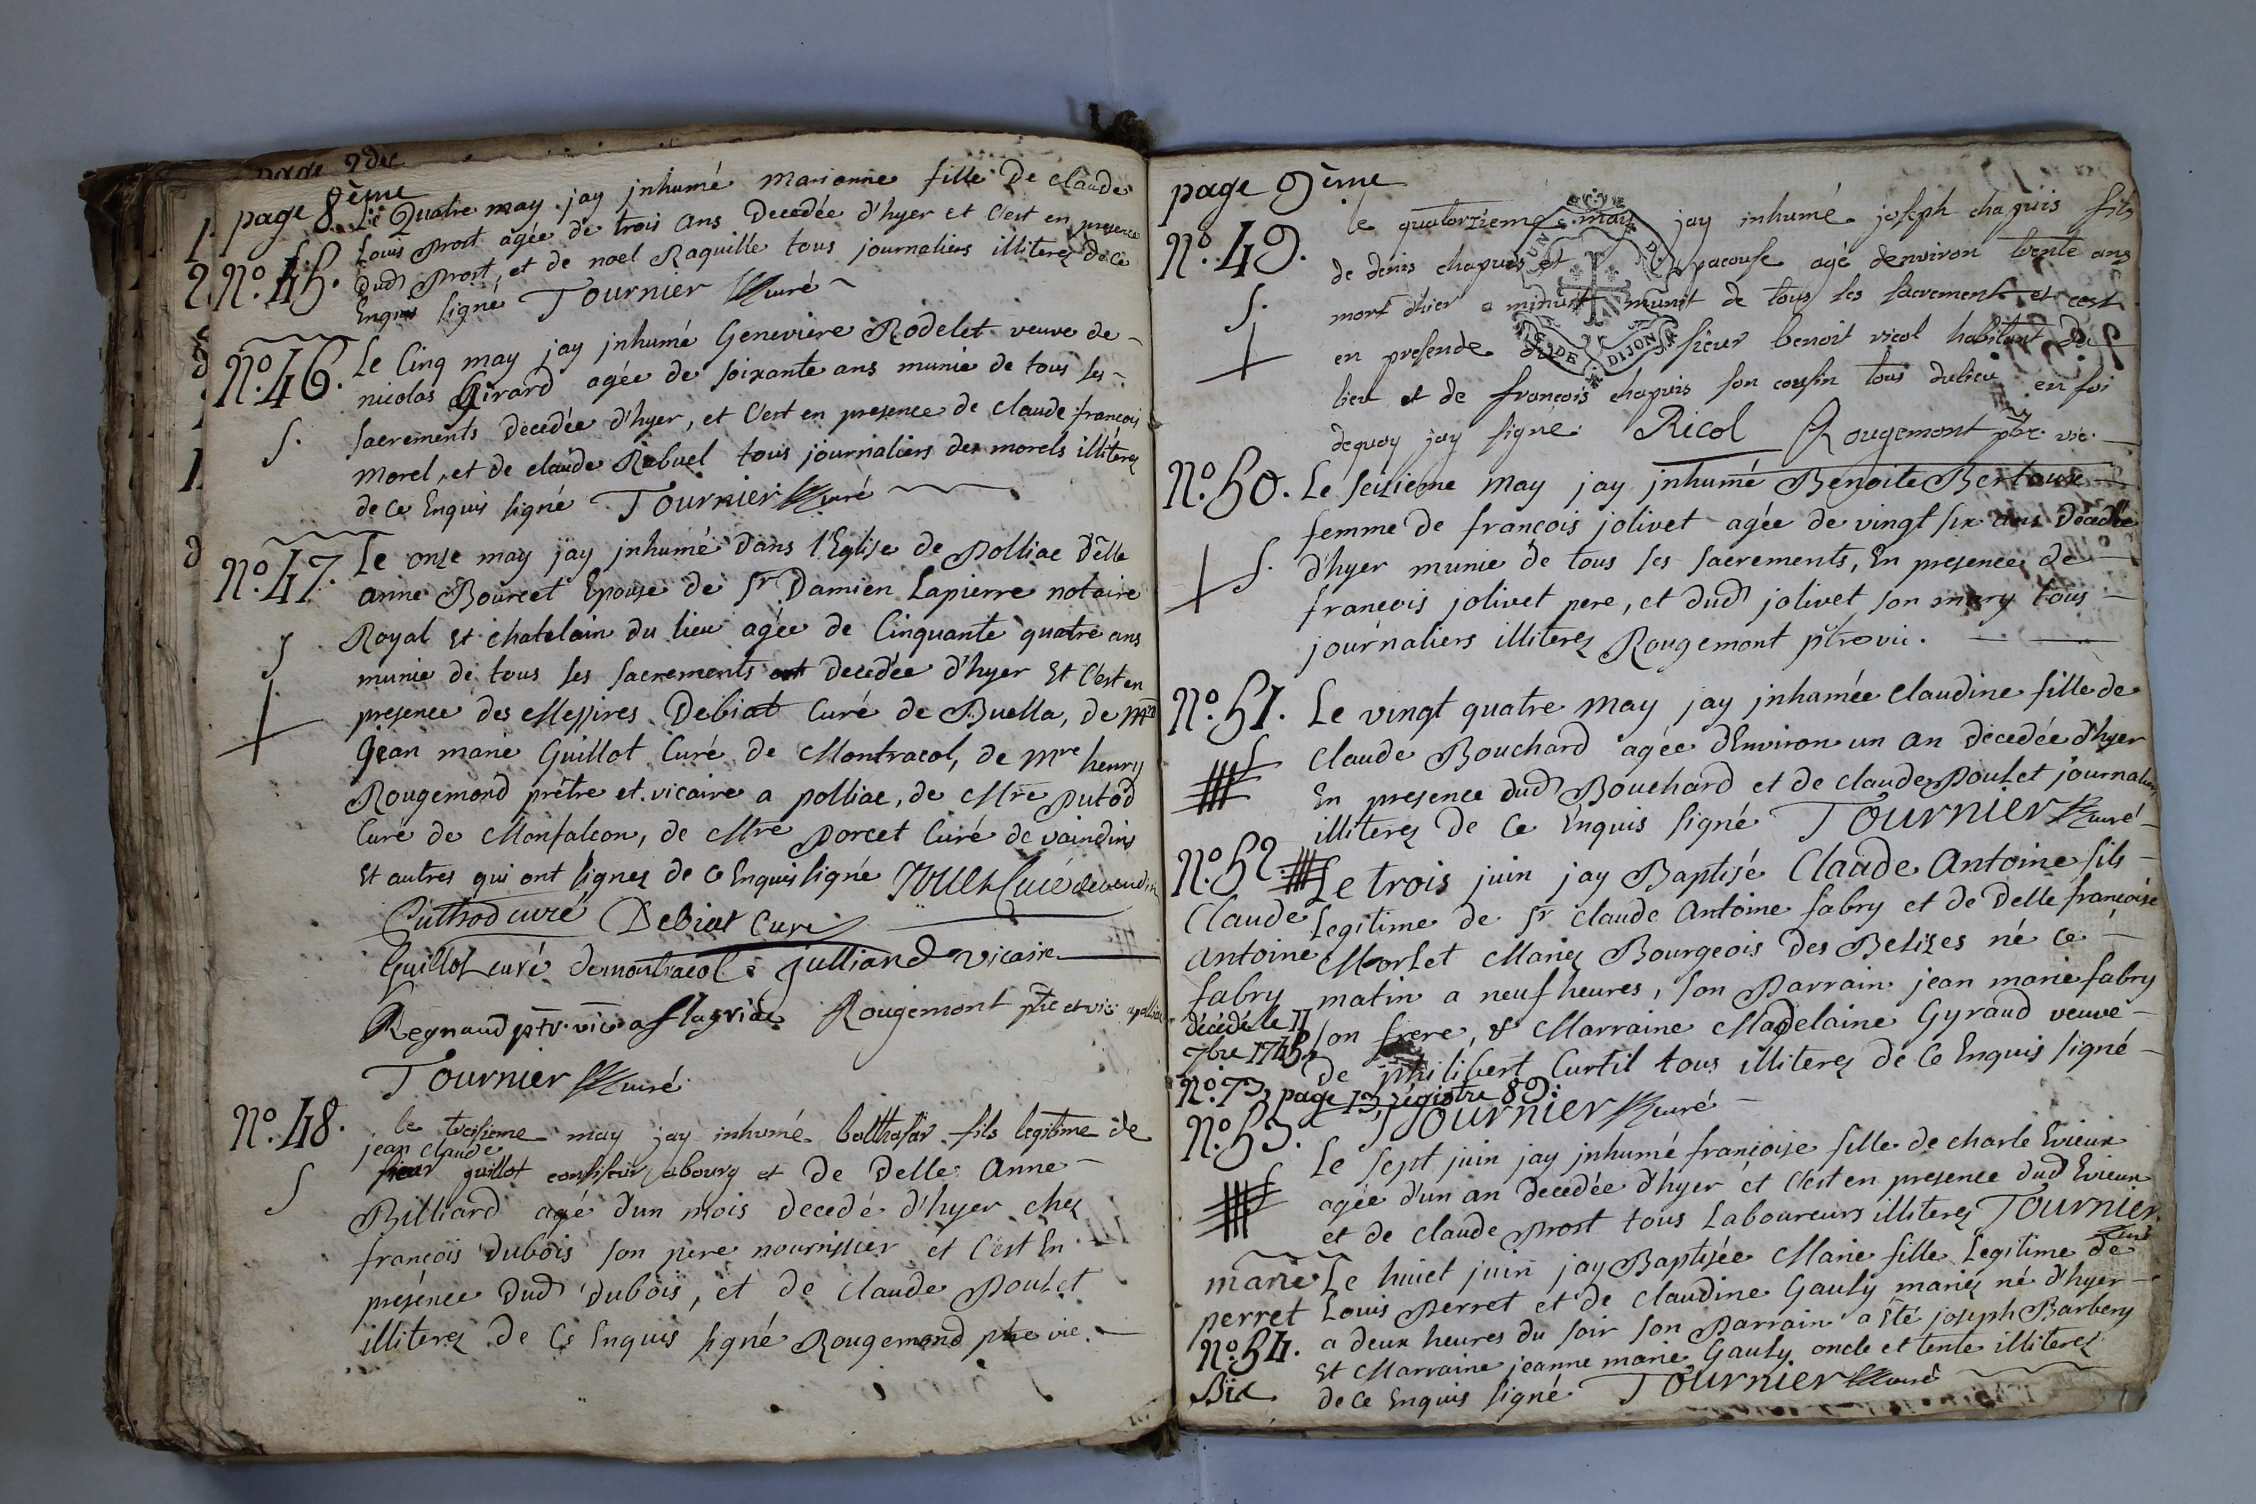 page 8ème
Le Quatre may jay jnhumé marianne fille De claude
No. 45. Louis Prost agée de trois ans Decedée d'hyer et C'est en presence
Dud Prost, et de noel Raquille tous journaliers illiterez de Ce
Enquis signé Tournier curé
No. 46. Le Cinq may jay jnhumé Genevieve Rodelet veuve de
nicolas Girard agée de soixante ans munie de tous ses
S. sacrements Decedée d'hyer, et C'est en presence de claude francois
Morel, et de claude Rebuel tous journaliers des morels illiterez
de Ce Enquis signé Tournier curé
No. 47. Le onze may jay jnhumé Dans l'Eglise de Polliac Delle
anne Bourcet Epouse de Sr Damien Lapierre notaire
Royal et chatelain du lieu agée de Cinquante quatre ans
S munie de tous ses sacrements decedée d'hyer Et C'est en
presence des Messires Debiat Curé de Buella, de Mre
jean marie Guillot Curé de Montracol, de Mre henry
Rougemond prêtre et vicaire a polliac, de Mre Putod
Curé de Monfalcon, de Mre Dorcet Curé de vaindins
Et autres qui ont signez de Ce Enquis signé Curé de vendin
Cuthod curé Debiat Cure
Guillot curé demontracol julliand vicaire
Regnaud ptr. vic a Rougemont ptre et vic apolliac
Tournier curé
No. 48. le treisieme may jay inhumé balthasar fils legitime de
jean Claude
S guillot confiseur abourg et De Delle Anne
Billiard agé Dun mois decedé d'hyer chez
françois Dubois son pere nourissier et C'est En
présence Dud Dubois, et de Claude Poulet
illiterez de Ce Enquis signé Rougemond ptre vic.
page 9ème
le quatorzieme may jay inhumé joseph chapuis fils
No. 49. de denis chapuis et pacouse agé denviron trente ans
S. mort d'hier a minuit munit de tous ses sacrement et cest
en presende du sieur benoit ricol habitant du
lieu et de françois chapuis son cousin tous dulieu en foi
dequoy jay signé Ricol Rougemont ptre vic.
No. 50. Le seizieme May jay jnhumé Benoite Bertoux
femme de françois jolivet agée de vingt six ans Decedée
S. d'hyer munie de tous ses sacrements, En presence de
francois jolivet pere, et dud jolivet son mary tous
journaliers illiterez Rougemont ptre vic.
No. 51. Le vingt quatre May jay jnhumée Claudine fille de
Claude Bouchard agée d'Environ un an Decedée d'hyer
S En presence dud Bouchard et de Claude Poulet journaliers
illiterez de Ce Enquis signé Tournier curé
No. 52. Le trois juin jay Baptisé Claude Antoine fils
Claude Legitime de Sr Claude Antoine fabry et de Delle françoise
Antoine Morlet Mariez Bourgeois Des Belizes né Ce
fabry matin a neuf heures, son Parrain jean marie fabry
décédé le 11 son frere, & Marraine Madelaine Gyraud veuve
7bre 1745 de philibert Curtil tous illiterez de Ce Enquis signé
No. 73 page 13 régistre 89:
Tournier curé
No. 53. Le sept juin jay jnhumé françoise fille de charle Evieux
S agée d'un an Decedée d'hyer et C'est en presence dud Evieux
et de Claude Prost tous Laboureurs illiterez Tournier
curé
marie Le huict juin jay Baptisée Marie fille Legitime de
perret Louis Perret et de Claudine Gauly mariez né d'hyer
No. 54. a deux heures du soir son Parrain a Eté joseph Barbery
Et Marraine jeanne marie Gauly oncle et tente illiterez
de Ce Enquis signé Tournier curé